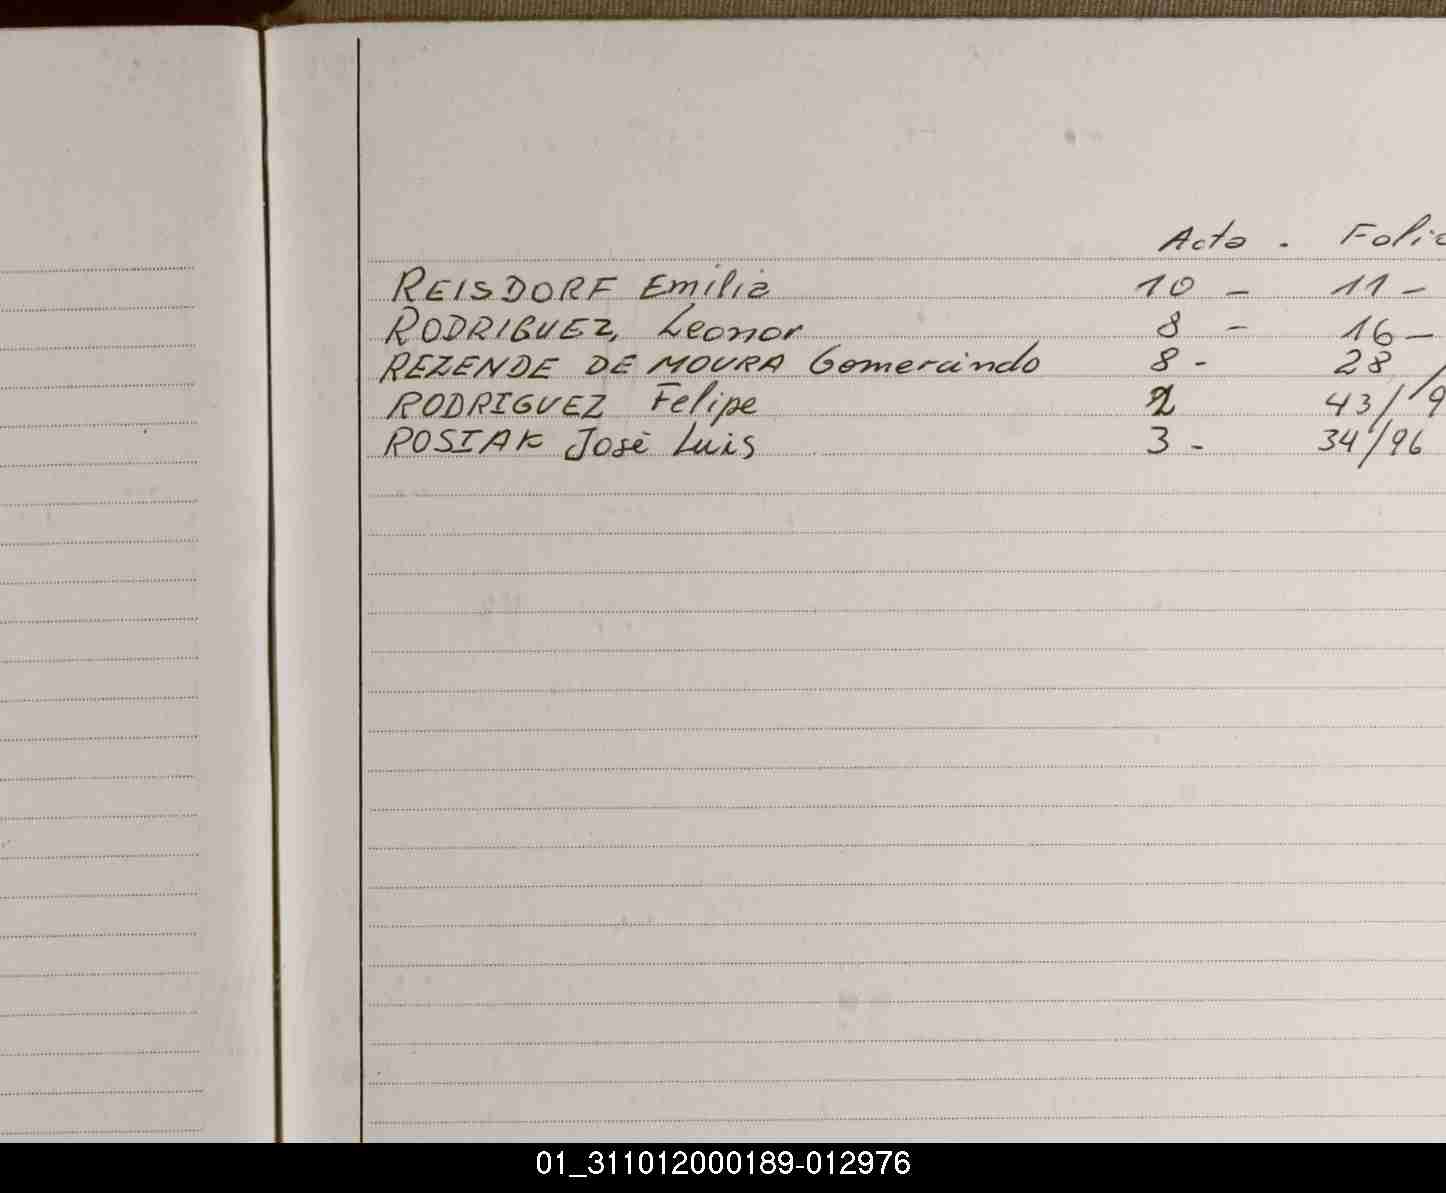 Acta - Folio
REISDORF Emilia 10 - 11 -
RODRIGUEZ, Leonor 8 - 16 -
REZENDE DE MOURA Gomercindo 8 - 28 /
RODRIGUEZ Felipe 2 43/9
ROSIAK José Luis 3 - 34/96
01_311012000189-012976